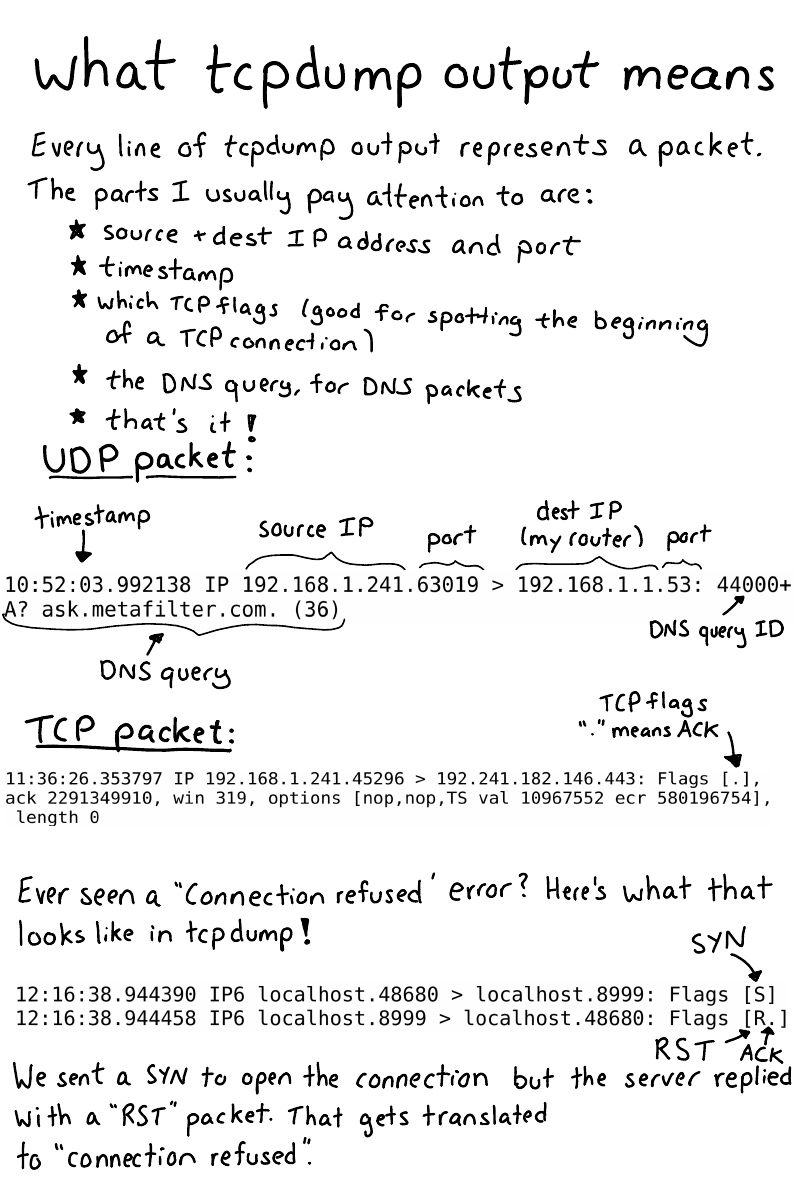 what tcpdump output means
Every line of tcpdump output represents a packet.
The parts I usually pay attention to are:
★ source + dest IP address and port
★ timestamp
★ which TCP flags (good for spotting the beginning
of a TCP connection)
★ the DNS query, for DNS packets
★ that's it!
UDP packet:
timestamp
source IP
port
dest IP
(my router)
port
10:52:03.992138 IP 192.168.1.241.63019 > 192.168.1.1.53: 44000+
A? ask.metafilter.com. (36)
DNS query ID
DNS query
TCP packet:
TCP flags
"." means ACK
11:36:26.353797 IP 192.168.1.241.45296 > 192.241.182.146.443: Flags [.],
ack 2291349910, win 319, options [nop,nop,TS val 10967552 ecr 580196754],
length 0
Ever seen a "Connection refused' error? Here's what that
looks like in tcpdump!
SYN
12:16:38.944390 IP6 localhost.48680 > localhost.8999: Flags [S]
12:16:38.944458 IP6 localhost.8999 > localhost.48680: Flags [R.]
RST
ACK
We sent a SYN to open the connection but the server replied
with a "RST" packet. That gets translated
to "connection refused".